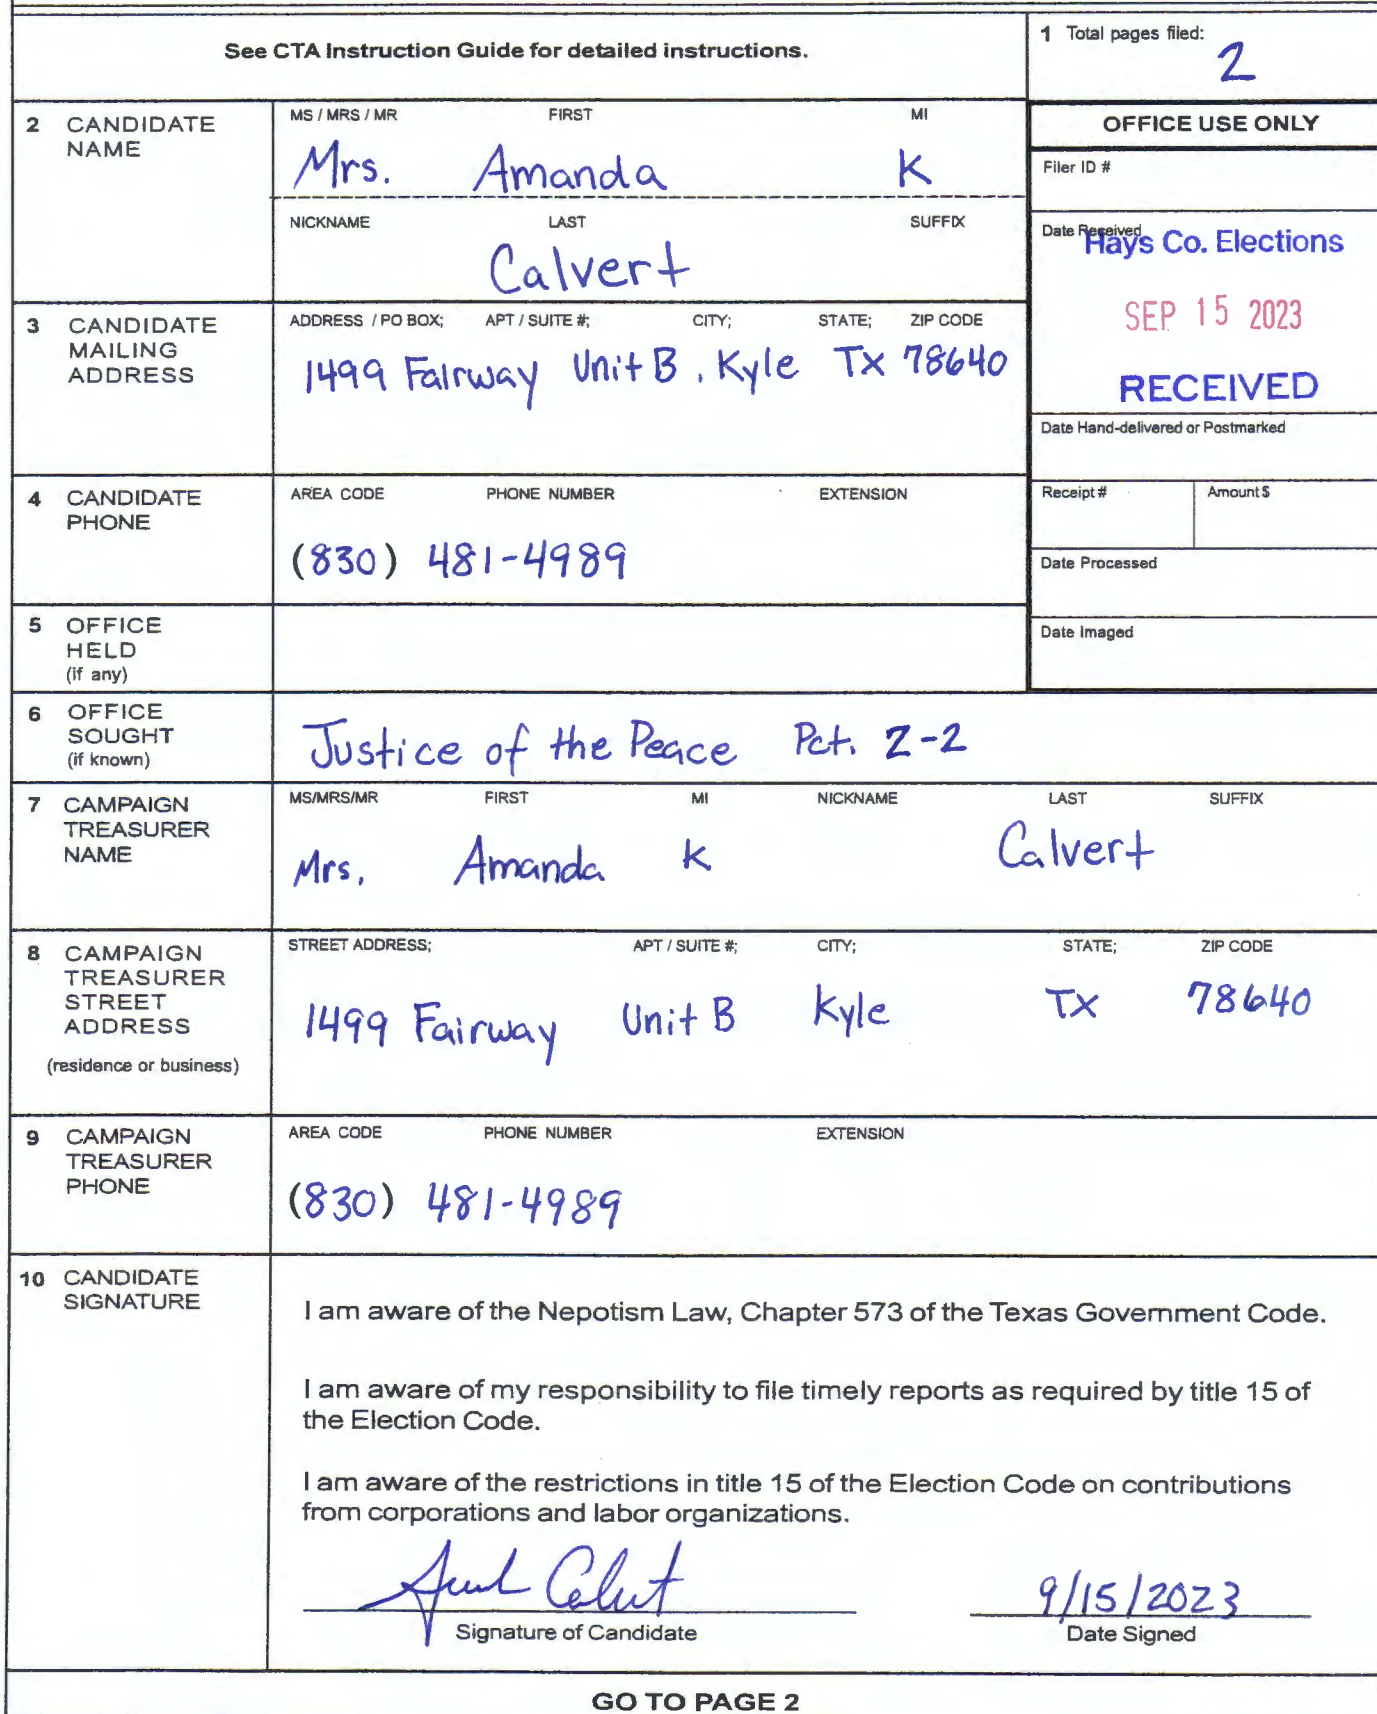 See CTA Instruction Guide for detailed instructions.
1 Total pages filed:
2
2 CANDIDATE NAME
MS / MRS / MR FIRST MI
Mrs. Amanda K
NICKNAME LAST SUFFIX
Calvert
OFFICE USE ONLY
Filer ID #
Date Received
Hays Co. Elections
SEP 15 2023
RECEIVED
Date Hand-delivered or Postmarked
Receipt # Amount $
Date Processed
Date Imaged
3 CANDIDATE MAILING ADDRESS
ADDRESS / PO BOX; APT / SUITE #; CITY; STATE; ZIP CODE
1499 Fairway Unit B, Kyle Tx 78640
4 CANDIDATE PHONE
AREA CODE PHONE NUMBER EXTENSION
(830) 481-4989
5 OFFICE HELD
(if any)
6 OFFICE SOUGHT
(if known)
Justice of the Peace Pct. 2-2
7 CAMPAIGN TREASURER NAME
MS/MRS/MR FIRST MI NICKNAME LAST SUFFIX
Mrs. Amanda K Calvert
8 CAMPAIGN TREASURER STREET ADDRESS
(residence or business)
STREET ADDRESS; APT / SUITE #; CITY; STATE; ZIP CODE
1499 Fairway Unit B Kyle TX 78640
9 CAMPAIGN TREASURER PHONE
AREA CODE PHONE NUMBER EXTENSION
(830) 481-4989
10 CANDIDATE SIGNATURE
I am aware of the Nepotism Law, Chapter 573 of the Texas Government Code.
I am aware of my responsibility to file timely reports as required by title 15 of
the Election Code.
I am aware of the restrictions in title 15 of the Election Code on contributions
from corporations and labor organizations.
9/15/2023
Signature of Candidate Date Signed
GO TO PAGE 2